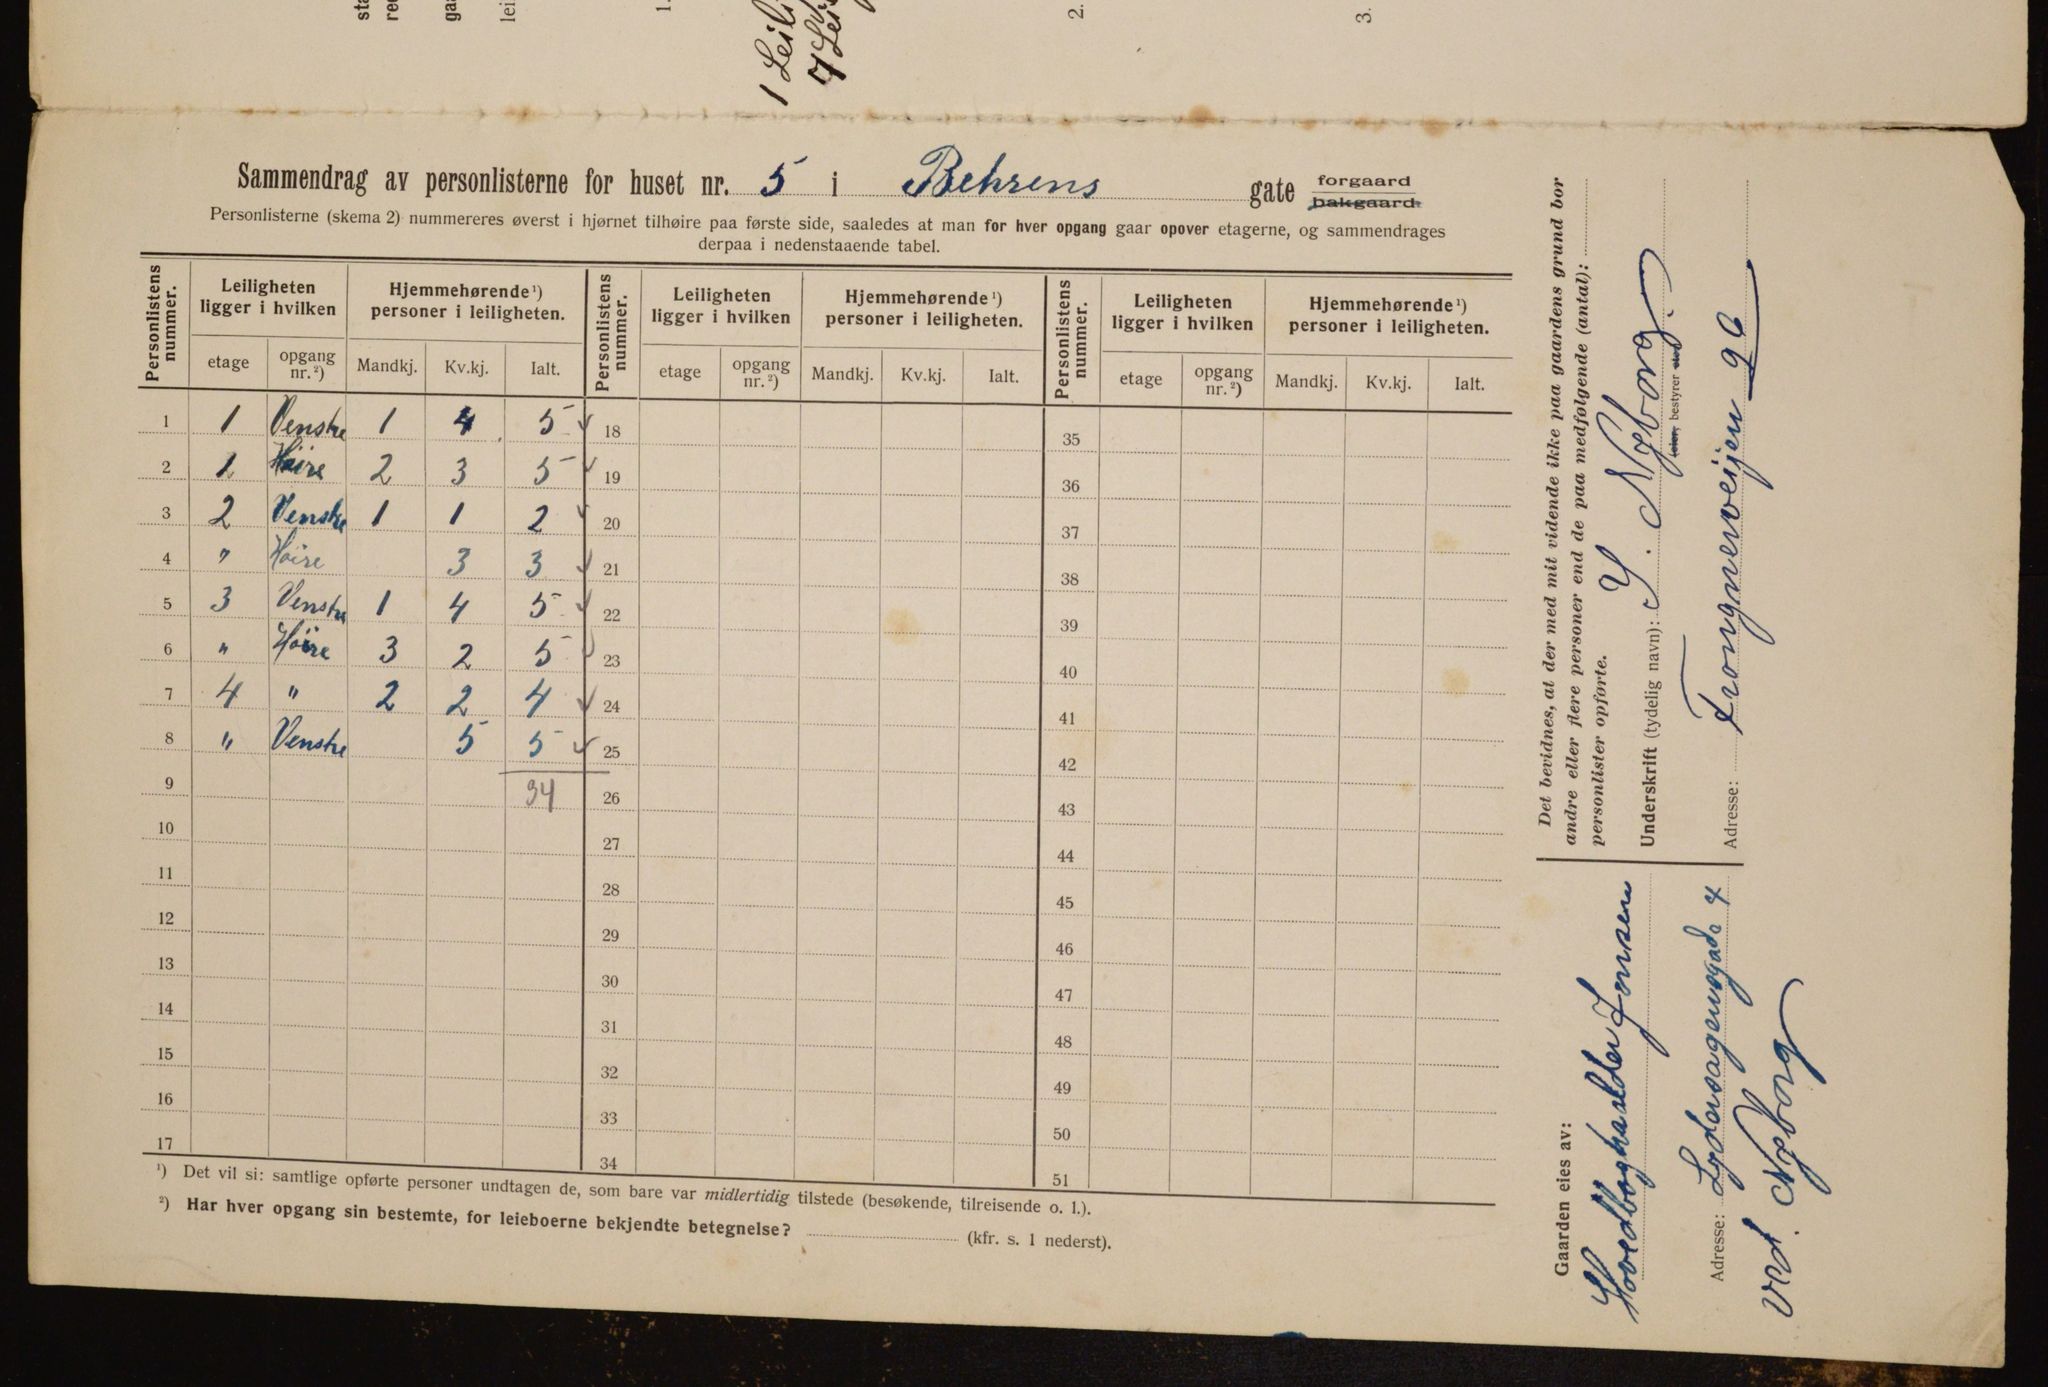 sta
re
ga
lei
1.
1 Leil
7 Lei
2.
3.
Sammendrag av personlisterne for huset nr. 5 i Behrens gate forgaard bakgaard
Personlisterne (skema 2) nummereres øverst i hjørnet tilhøire paa første side, saaledes at man for hver opgang gaar opover etagerne, og sammendrages
derpaa i nedenstaaende tabel.
Personlistens nummer. Leiligheten ligger i hvilken Hjemmehørende ¹) personer i leiligheten. Personlistens nummer. Leiligheten ligger i hvilken Hjemmehørende ¹) personer i leiligheten. Personlistens nummer. Leiligheten ligger i hvilken Hjemmehørende ¹) personer i leiligheten.
etage opgang nr. ²) Mandkj. Kv.kj. Ialt. etage opgang nr. ²) Mandkj. Kv.kj. Ialt. etage opgang nr. ²) Mandkj. Kv.kj. Ialt.
1 1 Venstre 1 4 5 ✓ 18 35
2 1 Høire 2 3 5 ✓ 19 36
3 2 Venstre 1 1 2 ✓ 20 37
4 " Høire 3 3 ✓ 21 38
5 3 Venstre 1 4 5 ✓ 22 39
6 " Høire 3 2 5 ✓ 23 40
7 4 " 2 2 4 ✓ 24 41
8 " Venstre 5 5 ✓ 25 42
9 34 26 43
10 27 44
11 28 45
12 29 46
13 30 47
14 31 48
15 32 49
16 33 50
17 34 51
¹) Det vil si: samtlige opførte personer undtagen de, som bare var midlertidig tilstede (besøkende, tilreisende o. l.).
²) Har hver opgang sin bestemte, for leieboerne bekjendte betegnelse? (kfr. s. 1 nederst).
Det bevidnes, at der med mit vidende ikke paa gaardens grund bor
andre eller flere personer end de paa medfølgende (antal):
personlister opførte.
Underskrift (tydelig navn): Y. Nyborg.
leier, bestyrer
Adresse: Frognerveijen 96
Gaarden eies av:
Hovedboghaalder Jensen
Adresse: Lydersagensgade 4
ved. Nyborg